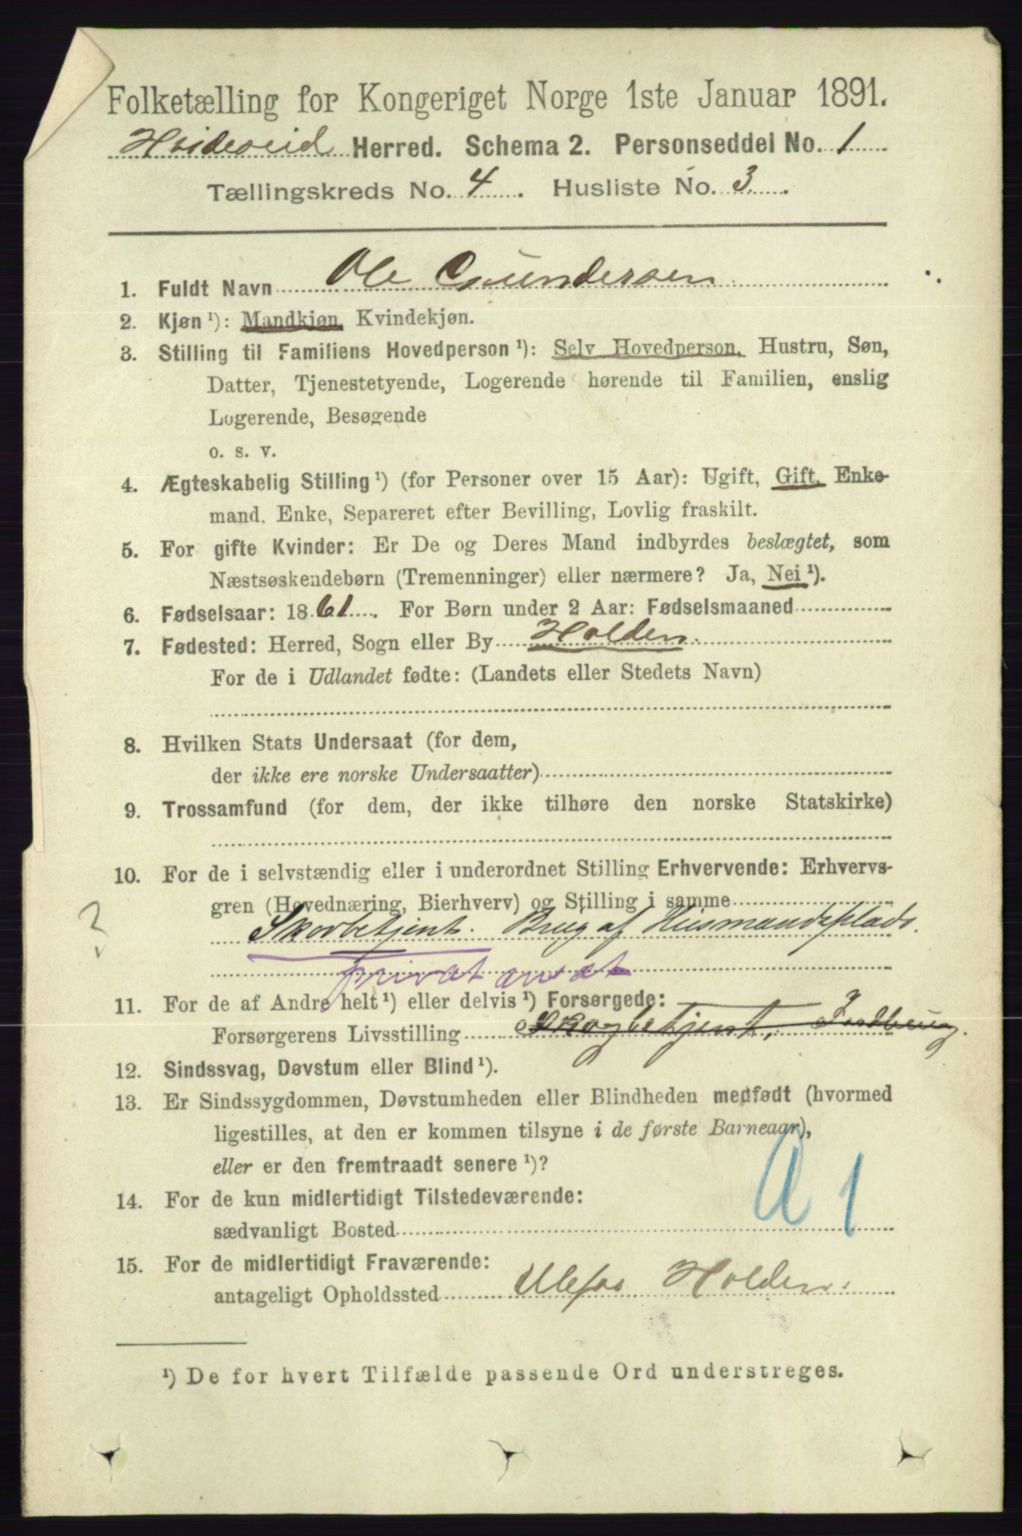 Folketælling for Kongeriget Norge 1ste Januar 1891.
Hvideseid Herred. Schema 2. Personseddel No. 1
Tællingskreds No. 4. Husliste No. 3.
1. Fuldt Navn Ole Gundersen
2. Kjøn ¹): Mandkjøn, Kvindekjøn.
3. Stilling til Familiens Hovedperson ¹): Selv Hovedperson, Hustru, Søn,
Datter, Tjenestetyende, Logerende hørende til Familien, enslig
Logerende, Besøgende
o. s. v.
4. Ægteskabelig Stilling ¹) (for Personer over 15 Aar): Ugift, Gift, Enke-
mand, Enke, Separeret efter Bevilling, Lovlig fraskilt.
5. For gifte Kvinder: Er De og Deres Mand indbyrdes beslægtet, som
Næstsøskendebørn (Tremenninger) eller nærmere? Ja, Nei ¹).
6. Fødselsaar: 1861. For Børn under 2 Aar: Fødselsmaaned
7. Fødested: Herred, Sogn eller By Holden.
For de i Udlandet fødte: (Landets eller Stedets Navn)
8. Hvilken Stats Undersaat (for dem,
der ikke ere norske Undersaatter)
9. Trossamfund (for dem, der ikke tilhøre den norske Statskirke)
10. For de i selvstændig eller i underordnet Stilling Erhvervende: Erhvervs-
gren (Hovednæring, Bierhverv) og Stilling i samme
? Skovbetjent. Brug af Husmandsplads.
privat ansat
11. For de af Andre helt ¹) eller delvis ¹) Forsørgede:
Forsørgerens Livsstilling Skogbetjent, Jordbrug.
12. Sindssvag, Døvstum eller Blind ¹).
13. Er Sindssygdommen, Døvstumheden eller Blindheden medfødt (hvormed
ligestilles, at den er kommen tilsyne i de første Barneaar),
eller er den fremtraadt senere ¹)?
14. For de kun midlertidigt Tilstedeværende:
sædvanligt Bosted
a 1
15. For de midlertidigt Fraværende:
antageligt Opholdssted Ulefos Holden.
¹) De for hvert Tilfælde passende Ord understreges.